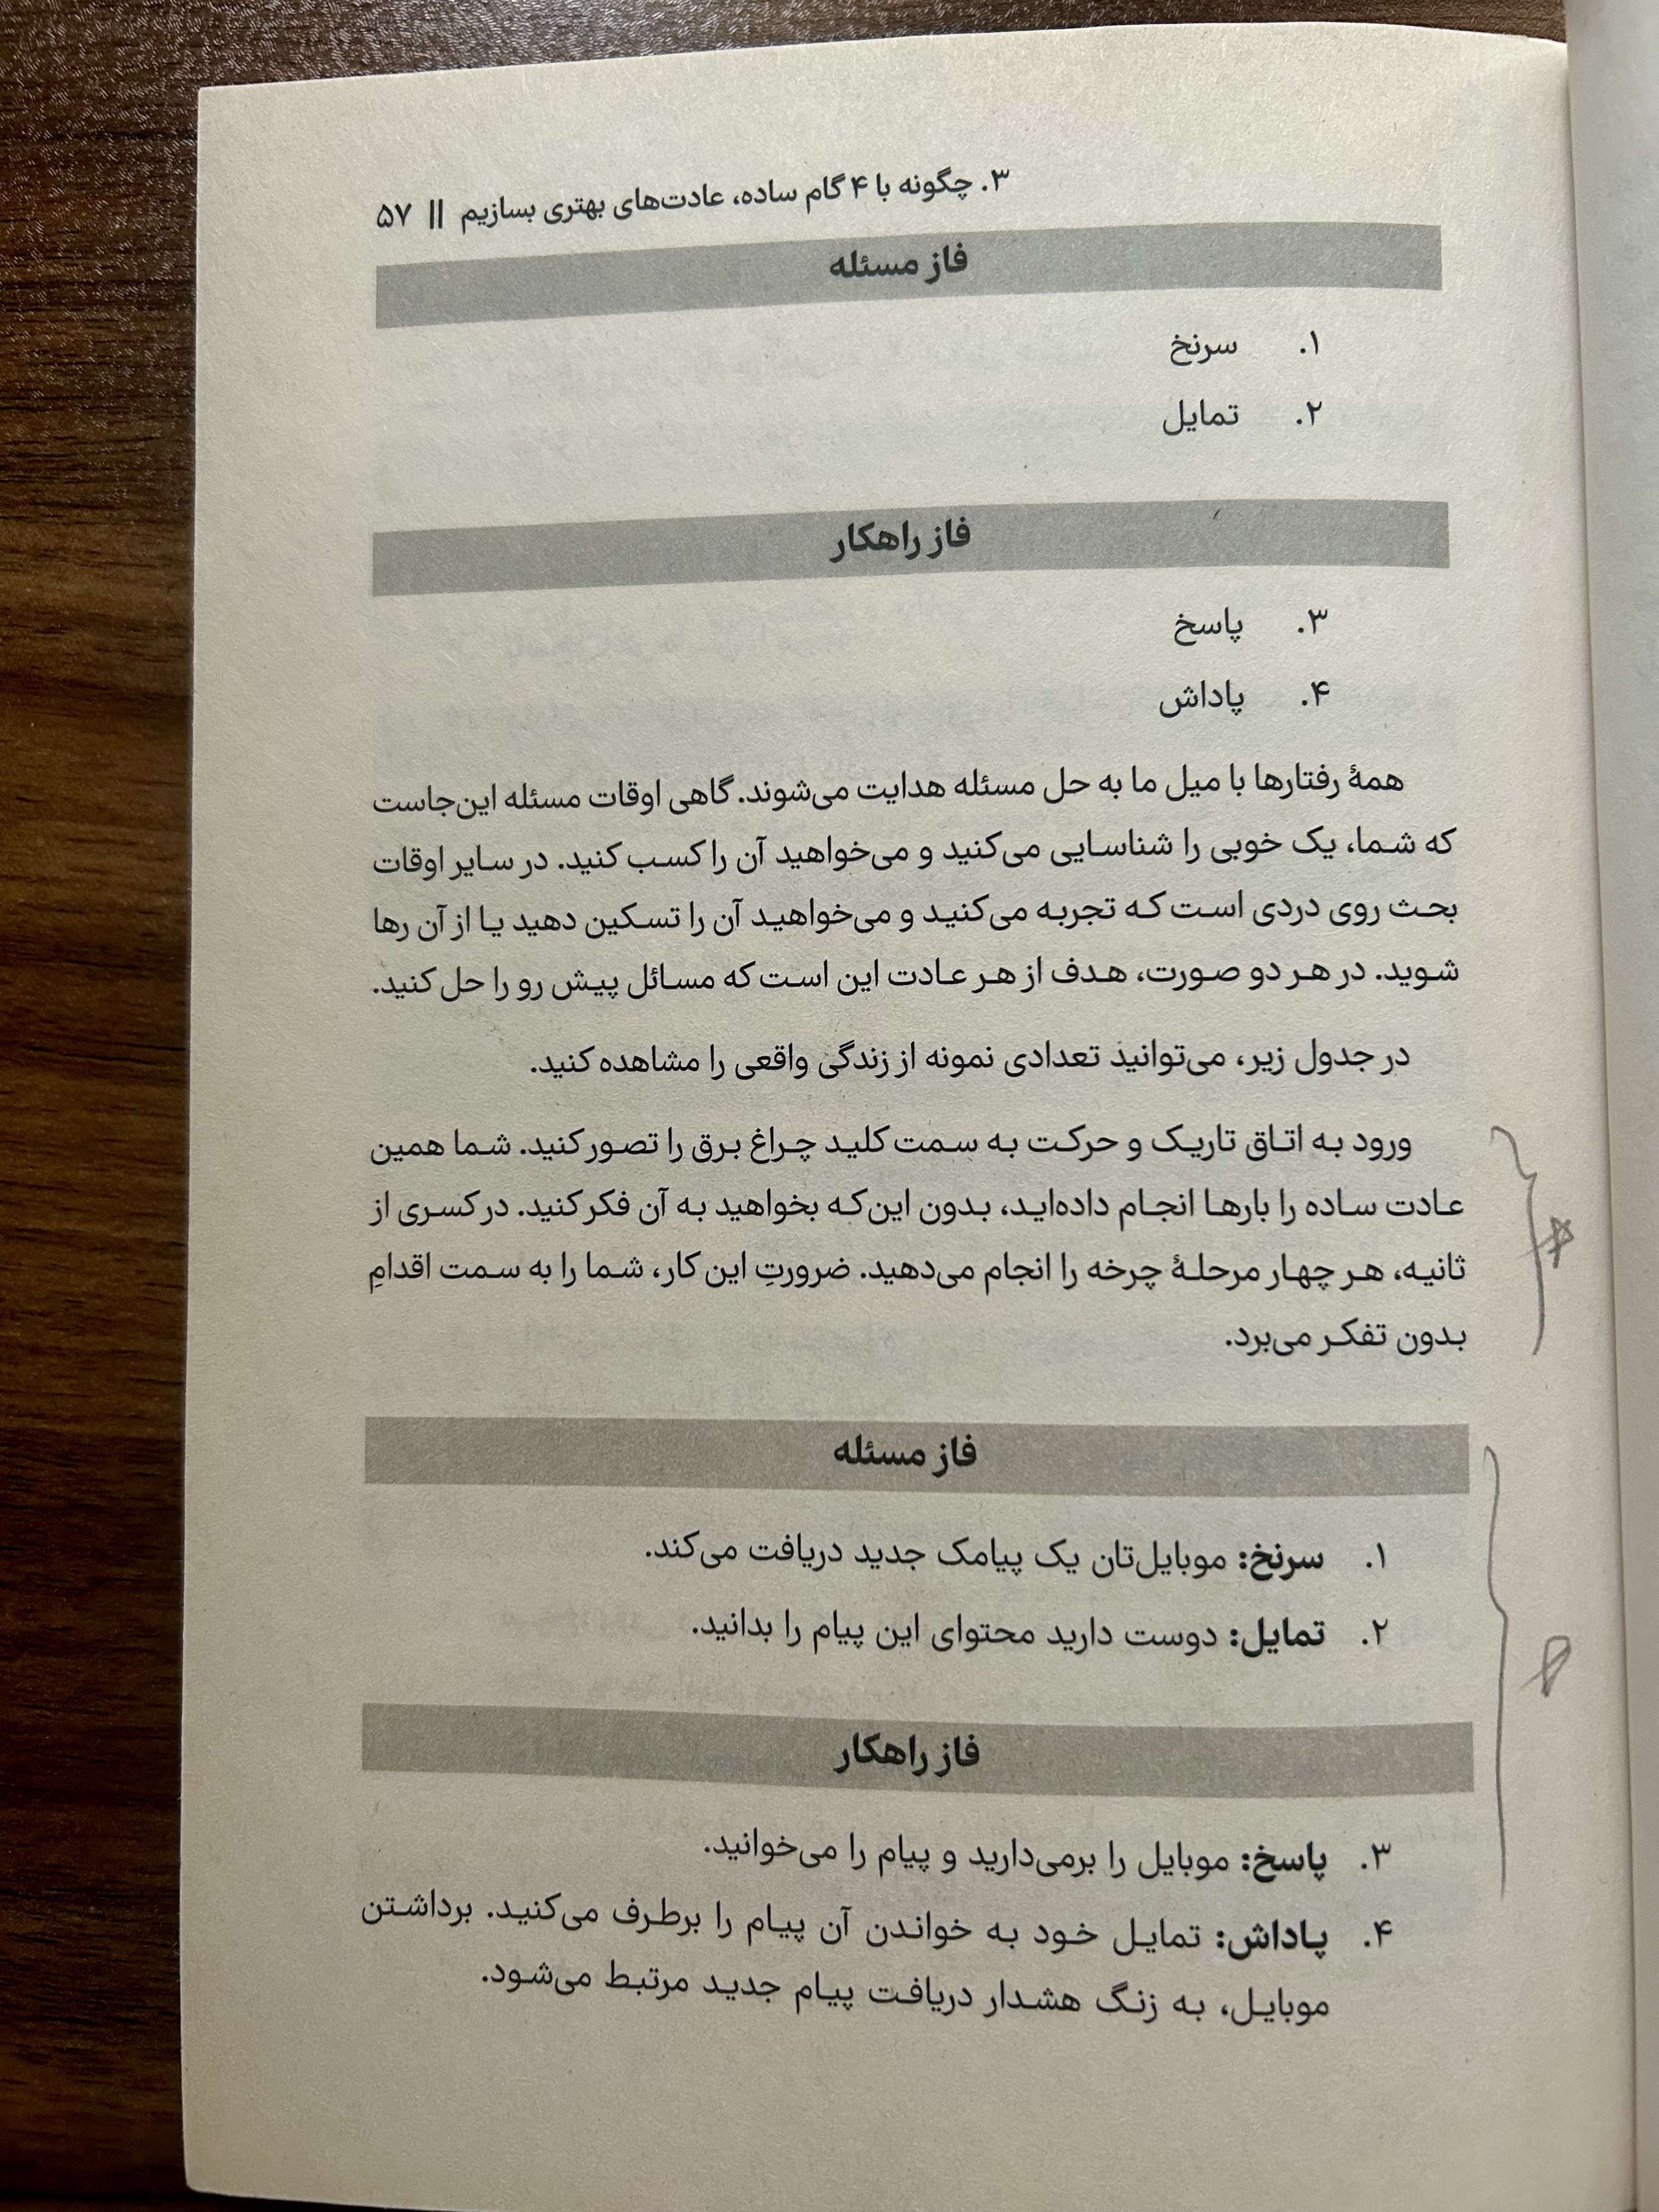 ۳. چگونه با ۴ گام ساده، عادت‌های بهتری بسازیم || ۵۷
فاز مسئله
۱. سرنخ
۲. تمایل
فاز راهکار
۳. پاسخ
۴. پاداش
همهٔ رفتارها با میل ما به حل مسئله هدایت می‌شوند. گاهی اوقات مسئله این‌جاست
که شما، یک خوبی را شناسایی می‌کنید و می‌خواهید آن را کسب کنید. در سایر اوقات
بحث روی دردی است که تجربه می‌کنید و می‌خواهید آن را تسکین دهید یا از آن رها
شوید. در هر دو صورت، هدف از هر عادت این است که مسائل پیش رو را حل کنید.
در جدول زیر، می‌توانید تعدادی نمونه از زندگی واقعی را مشاهده کنید.
ورود به اتاق تاریک و حرکت به سمت کلید چراغ برق را تصور کنید. شما همین
عادت ساده را بارها انجام داده‌اید، بدون این‌که بخواهید به آن فکر کنید. در کسری از
ثانیه، هر چهار مرحلهٔ چرخه را انجام می‌دهید. ضرورتِ این کار، شما را به سمت اقدامِ
بدون تفکر می‌برد.
فاز مسئله
۱. سرنخ: موبایل‌تان یک پیامک جدید دریافت می‌کند.
۲. تمایل: دوست دارید محتوای این پیام را بدانید.
فاز راهکار
۳. پاسخ: موبایل را برمی‌دارید و پیام را می‌خوانید.
۴. پاداش: تمایل خود به خواندن آن پیام را برطرف می‌کنید. برداشتن
موبایل، به زنگ هشدار دریافت پیام جدید مرتبط می‌شود.